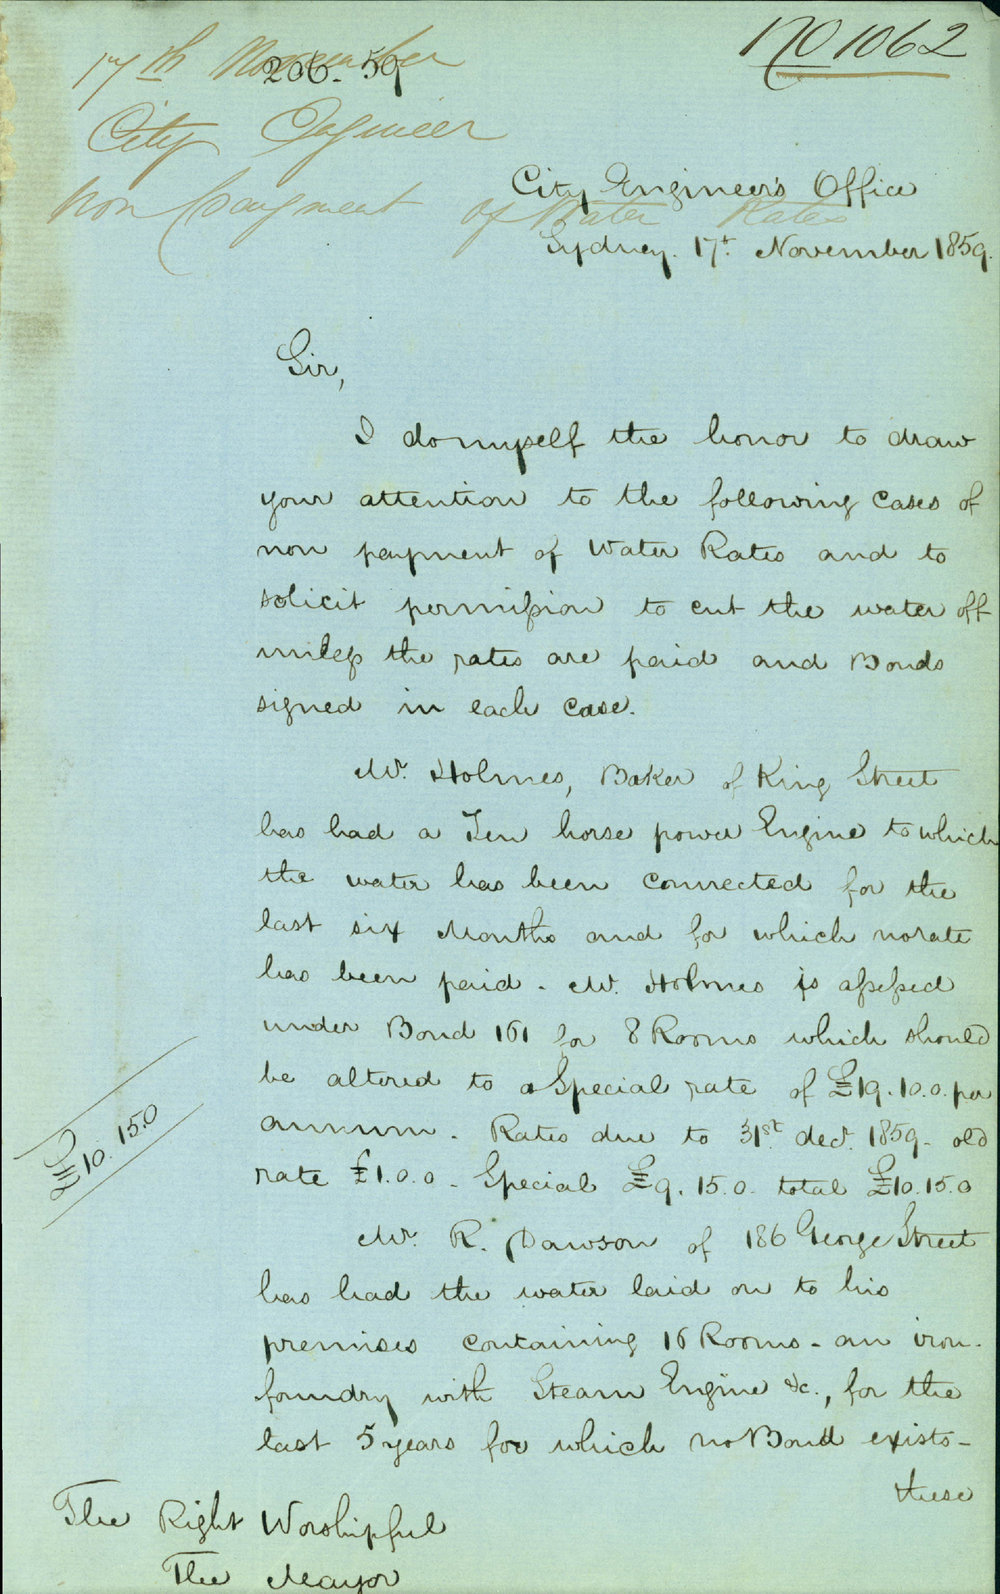 No 1062
17th November
206-59
City Engineer
Non Payment of Water Rates
City Engineer's Office
Sydney. 17t. November 1859.
Sir,
I do myself the honor to draw
your attention to the following cases of
non payment of Water Rates and to
solicit permission to cut the water off
unless the rates are paid and Bonds
signed in each case.
Mr. Holmes, Baker of King Street
has had a Ten horse power Engine to which
the water has been connected for the
last six Months and for which no rate
has been paid - Mr. Holmes is assessed
under Bond 161 for 8 Rooms which should
be altered to a Special rate of £19.10.0. per
annum. Rates due to 31st. decr. 1859 - old
rate £1.0.0 - Special £9.15.0. total £10.15.0
£10.15.0
Mr. R. Dawson of 186 George Street
has had the water laid on to his
premises containing 16 Rooms - an iron-
foundry with Steam Engine &c., for the
last 5 years for which no Bond exists -
these
The Right Worshipful
The Mayor